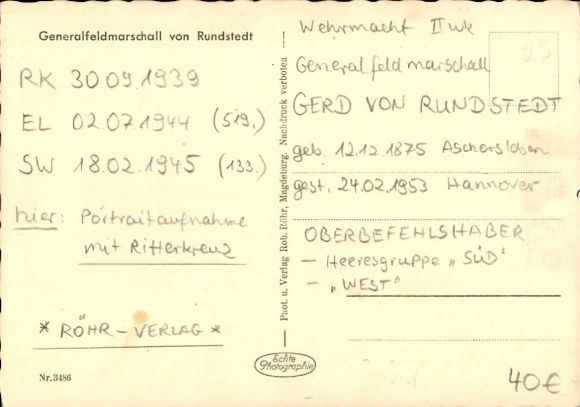 Generalfeldmarschall von Rundstedt
RK 30.09.1939
EL 02.07.1944 (519.)
SW 18.02.1945 (133.)
hier: Portraitaufnahme
mit Ritterkreuz
* RÖHR-VERLAG *
Nr. 3486
Phot. u. Verlag Rob. Röhr, Magdeburg. Nachdruck verboten
Echte
Photographie
Wehrmacht II wk
25
Generalfeldmarschall
GERD VON RUNDSTEDT
geb. 12.12.1875 Aschersleben
gest. 24.02.1953 Hannover
OBERBEFEHLSHABER
- Heeresgruppe „SÜD"
- „WEST"
40€